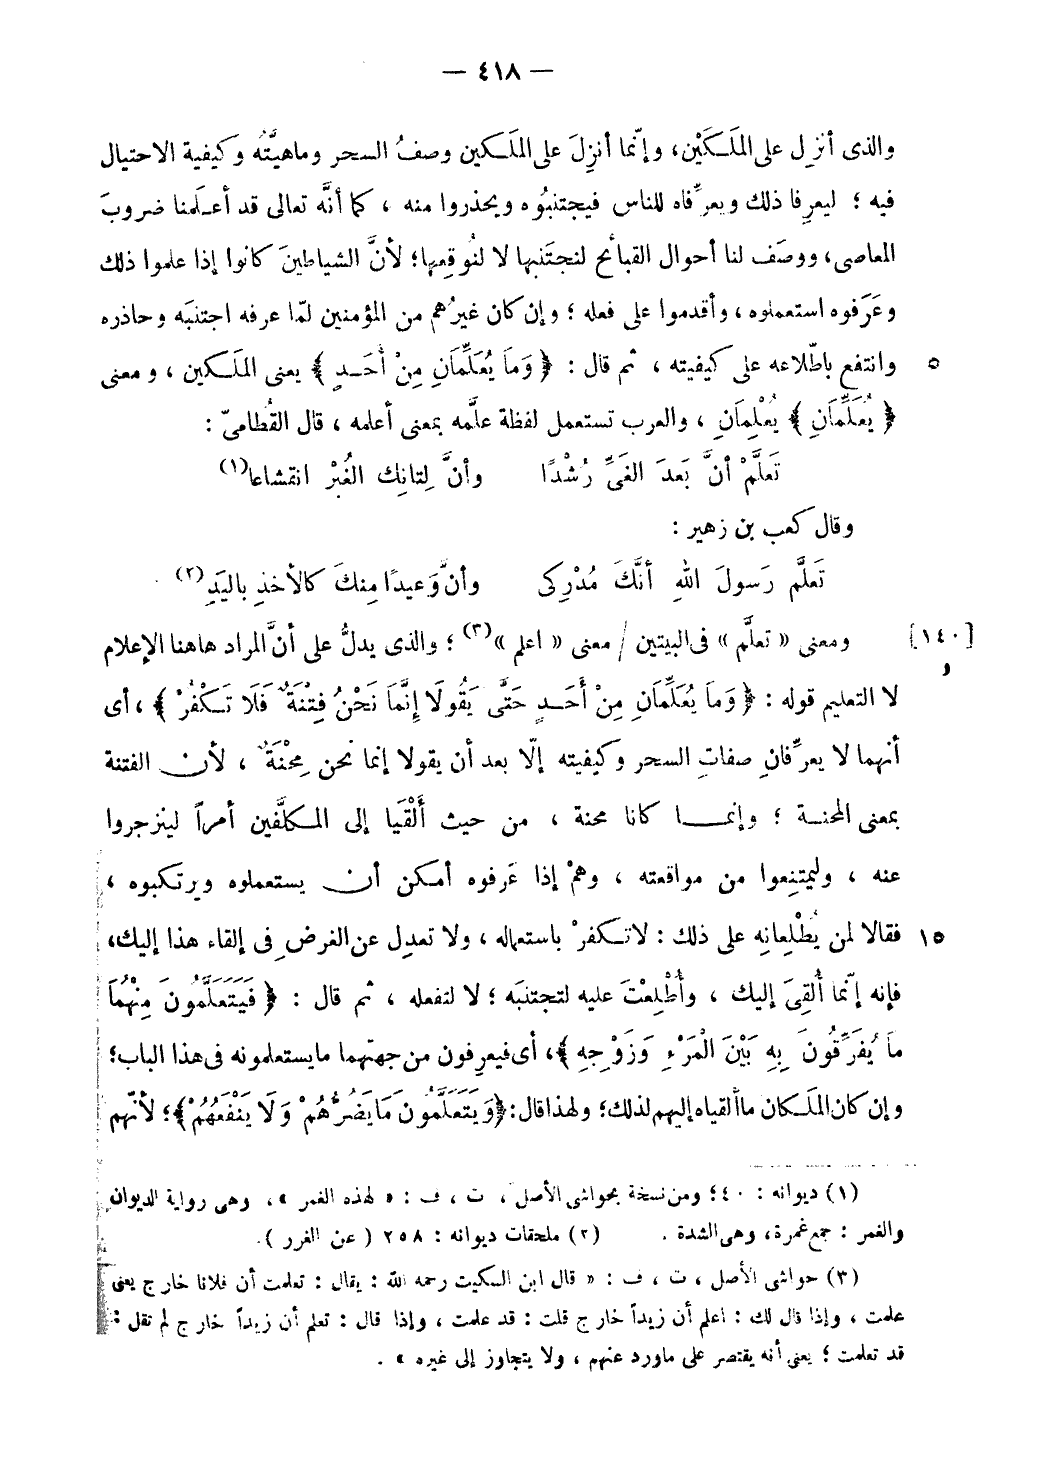 — ٤١٨ —
والذى أنزل على المَلَكَيْن، وإنّما أنزِلَ على المَلَكين وصفُ السحر وماهيَّتُه وكيفية الاحتيال
فيه ؛ ليعرِفا ذلك ويعرِّفاه للناس فيجتنبُوه ويحذروا منه ، كما أنَّه تعالى قد أعلَمنا ضروبَ
المعاصى، ووصَف لنا أحوال القبائح لنجتَنبها لا لنُوقِعها؛ لأنَّ الشياطينَ كانوا إذا علموا ذلك
وعَرَفوه استعملوه ، وأقدموا على فعله ؛ وإن كان غيرُهم من المؤمنين لمّا عرفه اجتنبَه وحاذره
وانتفع باطّلاعه على كيفيته ، ثم قال : ﴿ وَمَا يُعَلِّمَانِ مِنْ أَحَدٍ ﴾ يعنى المَلَكين ، ومعنى ٥
﴿ يُعَلِّمَانِ ﴾ يُعْلِمَانِ ، والعرب تستعمل لفظة علَّمه بمعنى أعلمه ، قال القُطامىّ :
تَعَلَّمْ أنَّ بَعدَ الغَىِّ رُشْدًا وأنَّ لِتانِك الغُبْرْ انقشاعا(١)
وقال كعب بن زهير :
تَعَلَّم رَسولَ اللهِ أنَّكَ مُدْرِكى وأنَّ وَعيدًا مِنكَ كالأخذِ باليَدِ(٢)
ومعنى « تعلَّم » فى البيتين / معنى « اعلم »(٣) ؛ والذى يدلُّ على أنَّ المراد هاهنا الإعلام [١٤٠ و]
لا التعليم قوله : ﴿ وَمَا يُعَلِّمَانِ مِنْ أَحَدٍ حَتَّى يَقُولَا إِنَّمَا نَحْنُ فِتْنَةٌ فَلَا تَكْفُرْ ﴾ ، أى
أنهما لا يعرِّفانِ صفاتِ السحر وكيفيته إلّا بعد أن يقولا إنما نحن مِحْنَةٌ ، لأن الفتنة
بمعنى المحنة ؛ وإنما كانا محنة ، من حيث أَلْقَيَا إلى المكلَّفين أمراً لينزجروا
عنه ، وليمتنِعوا من مواقعته ، وهمْ إذا عَرفوه أمكن أن يستعملوه ويرتكبوه ،
فقالا لمن يُطْلِعانِه على ذلك : لاتكفرْ باستعماله ، ولا تعدِل عن الغرض فى إلقاء هذا إليك، ١٥
فإنه إنّما أُلقِىَ إليك ، وأُطْلِعْتَ عليه لتجتنبَه ؛ لا لتفعله ، ثم قال : ﴿ فَيَتَعَلَّمُونَ مِنْهُمَا
مَا يُفَرِّقُونَ بِهِ بَيْنَ الْمَرْءِ وَزَوْجِهِ ﴾، أى فيعرِفون من جهتهما ما يستعلمونه فى هذا الباب؛
وإن كان المَلَكان ما ألقياه إليهم لذلك؛ ولهذا قال: ﴿وَيَتَعَلَّمُونَ مَا يَضُرُّهُمْ وَلَا يَنْفَعُهُمْ﴾؛ لأنّهم
(١) ديوانه : ٤٠؛ ومن نسخة بحواشى الأصل ، ت ، ف : « لهذه الغمر » ، وهى رواية الديوان
والغمر : جمع غمرة، وهى الشدة . (٢) ملحقات ديوانه : ٢٥٨ ( عن الغرر ).
(٣) حواشى الأصل ، ت ، ف : « قال ابن السكيت رحمه الله : يقال : تعلمت أن فلانا خارج يعنى
علمت ، وإذا قال لك : اعلم أن زيداً خارج قلت : قد علمت ، وإذا قال : تعلم أن زيداً خارج لم تقل :
قد تعلمت ؛ يعنى أنه يقتصر على ماورد عنهم ، ولا يتجاوز إلى غيره » .